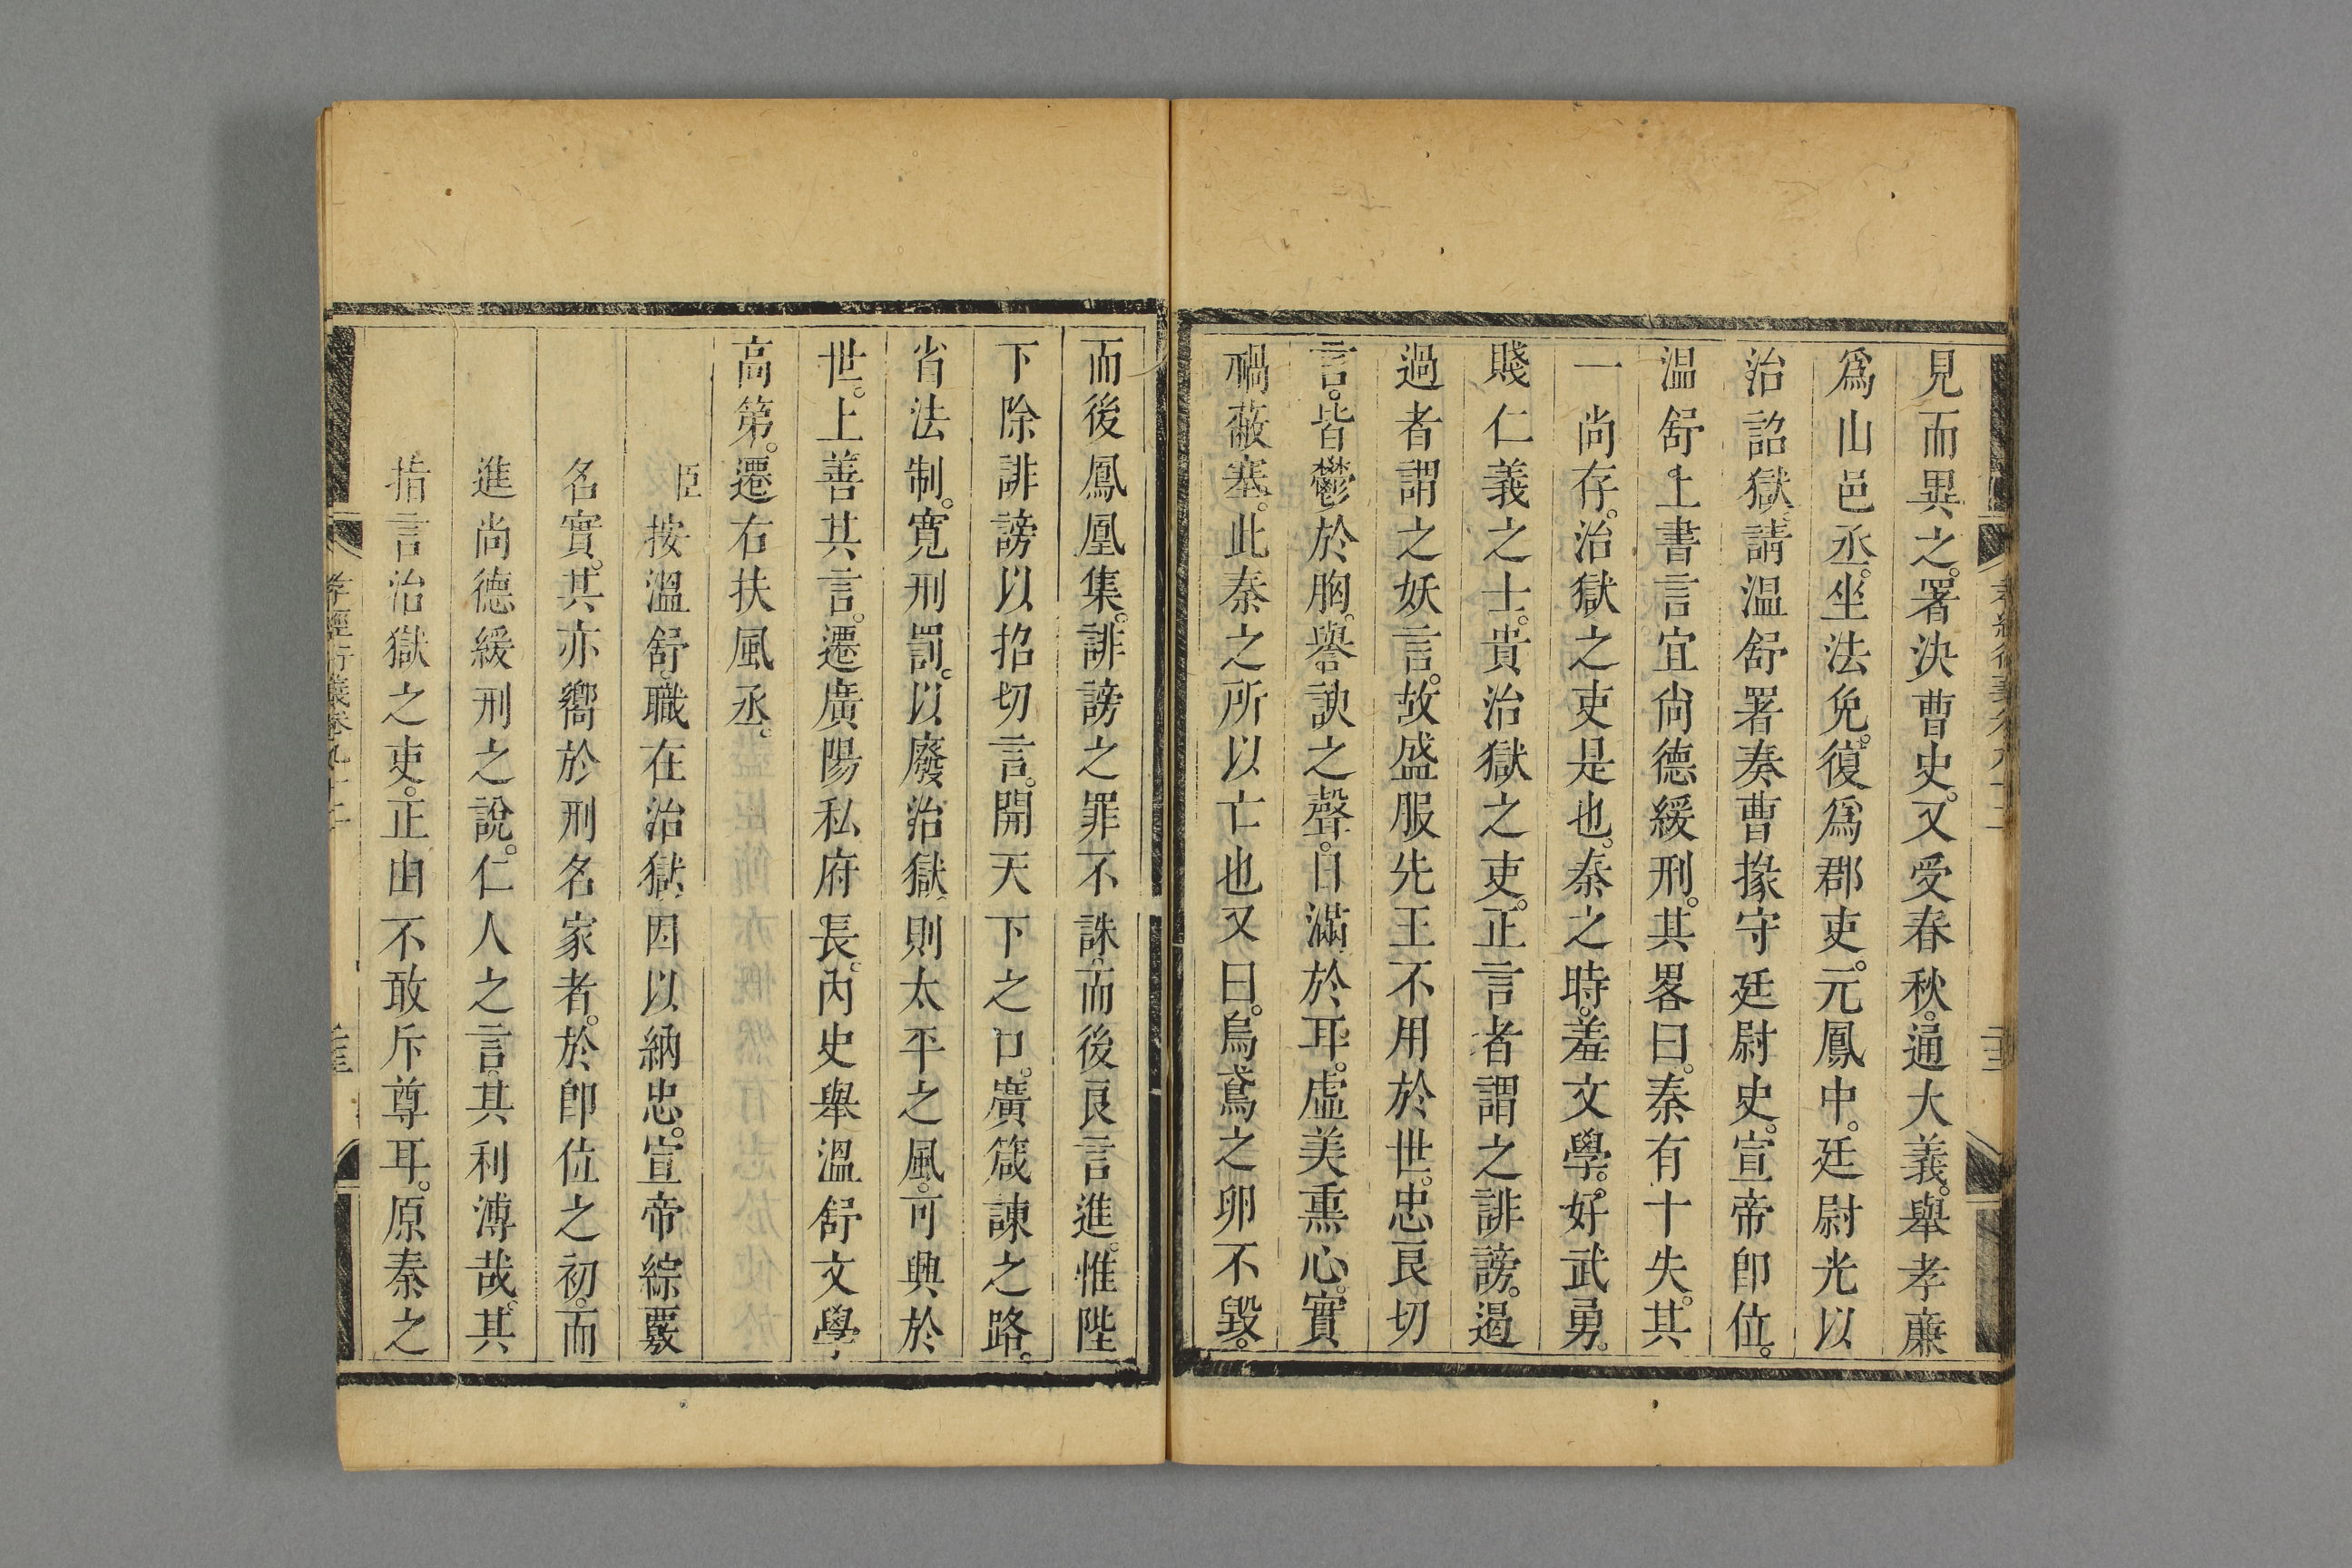 見而異之。署決曹史。又受春秋。通大義。舉孝廉
爲山邑丞。坐法免。復爲郡吏。元鳳中。廷尉光以
治詔獄。請溫舒署奏曹掾守廷尉史。宣帝卽位。
温舒上書言宜尙德緩刑。其畧曰。秦有十失。其
一尚存。治獄之吏是也。秦之時。羞文學。好武勇。
賤仁義之士。貴治獄之吏。正言者謂之誹謗。遏
過者謂之妖言。故盛服先王不用於世。忠良切
言。皆鬱於胸。譽諛之聲。日滿於耳。虛美熏心。實
禍蔽塞。此秦之所以亡也又曰。烏鳶之卵不毀。
而後鳳凰集。誹謗之罪不誅。而後良言進。惟陛
下除誹謗以招切言。開天下之口。廣箴諫之路。
省法制。寬刑罰。以廢治獄。則太平之風。可興於
世。上善其言。遷廣陽私府長。內史舉溫舒文學
高第。遷右扶風丞。
臣按溫舒。職在治獄。因以納忠。宣帝綜覈
名實。其亦嚮於刑名家者。於卽位之初。而
進尚德緩刑之說。仁人之言。其利溥哉。其
指言治獄之吏。正由不敢斥尊耳。原秦之
孝經衍義卷九十二